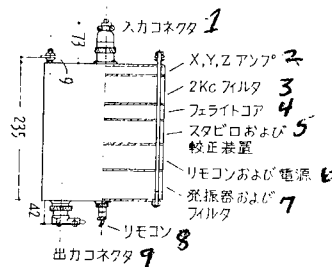 入力コネクタ 1
73
X,Y,Z アンプ 2
9
2Kc フィルタ 3
フェライトコア 4
235
スタビロおよび 5
較正装置
リモコンおよび電源 6
発振器および 7
フィルタ
42
リモコン 8
出力コネクタ 9